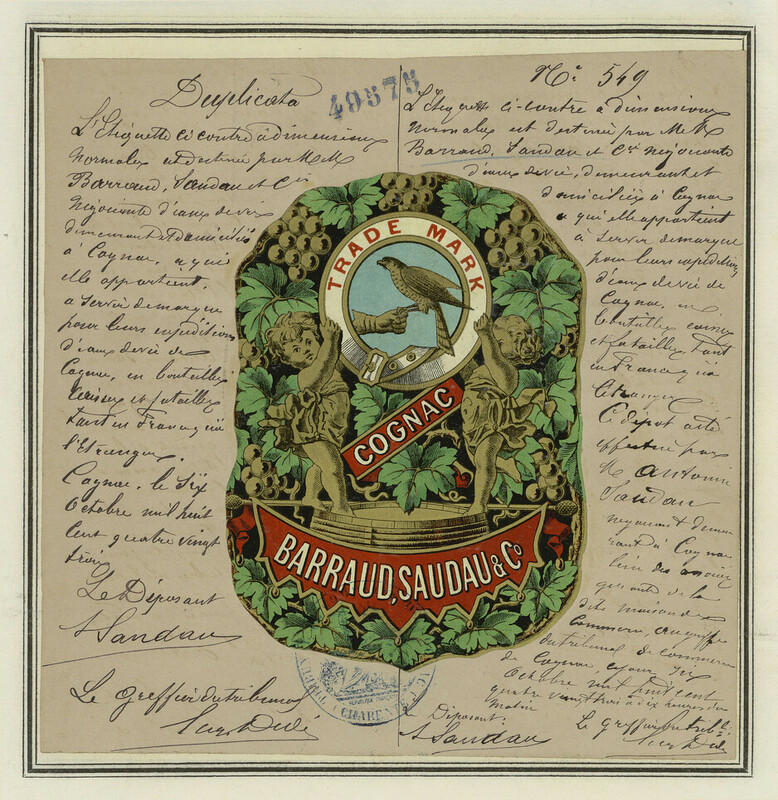 Duplicata
49575
L'Etiquette ci contre à dimensions
normales est destinée par MM
Barraud, Saudau et Cie
négociants d'eaux de vie
demeurant et domiciliés
à Cognac, a qui
elle appartient.
a servir de marque
pour leurs expéditions
d'eaux de vie de
Cognac, en bouteilles
caisses et futailles
tant en France qu'à
l'Etranger.
Cognac, le Six
Octobre mil huit
cent quatre vingt
trois
Le Déposant
A Saudau
Le greffier du tribunal
TRADE MARK
COGNAC
BARRAUD, SAUDAU & Co
No 549
L'Etiquette ci-contre a dimensions
normales est destinée par MM
Barraud, Saudau et Cie négociants
d'eaux de vie, demeurant et
domiciliés à Cognac
a qui elle appartient
à servir de marque
pour leurs expéditions
d'eaux de vie de
Cognac, en
bouteilles caisses
et futailles tant
en France qu'à
l'Etranger
Ce dépot a été
effectué par
M Antonin
Saudau
négociant demeu
rant à Cognac
l'un des associés
gérants de la
dite maison de
Commerce, au greffe
du tribunal de commerce
de Cognac, ce jour six
Octobre mil huit cent
quatre vingt trois à dix heures du
matin
Le Déposant:
A Saudau
Le greffier du trib:
CHARENTE